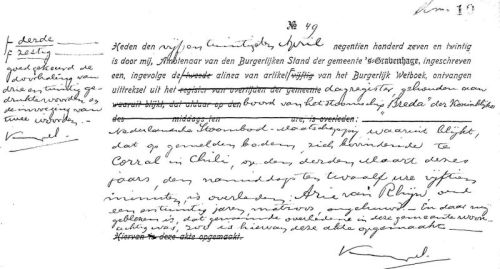 Nº 49
ƒ derde
ƒ zestig
goedgekeurd de
doorhaling van
drie en twintig ge-
drukte woorden en
de invoeging van
twee woorden.
Heden den vijf en twintigsten April negentien honderd zeven en twintig
is door mij, Ambtenaar van den Burgerlijken Stand der gemeente 's-Gravenhage, ingeschreven
een, ingevolge de tweede alinea van artikel vijftig van het Burgerlijk Wetboek, ontvangen
uittreksel uit het register van overlijden der gemeente dagregister, gehouden aan
waaruit blijkt, dat aldaar op den boord van het stoomschip "Breda" der Koninklijke
des middags ten ure, is overleden:
Nederlandsche Stoomboot-Maatschappij waaruit blijkt,
dat op gemelden bodem, zich bevindende te
Corral in Chili, op den derden Maart dezes
jaars, des namiddags ten twaalf ure vijftien
minuten is overleden: Arie van Rhijn, oud
een en twintig jaren, matroos, ongehuwd. En daar mij
gebleken is, dat genoemde overledene in deze gemeente woon-
achtig was, zoo is hiervan deze akte opgemaakt.
Hiervan is deze akte opgemaakt.